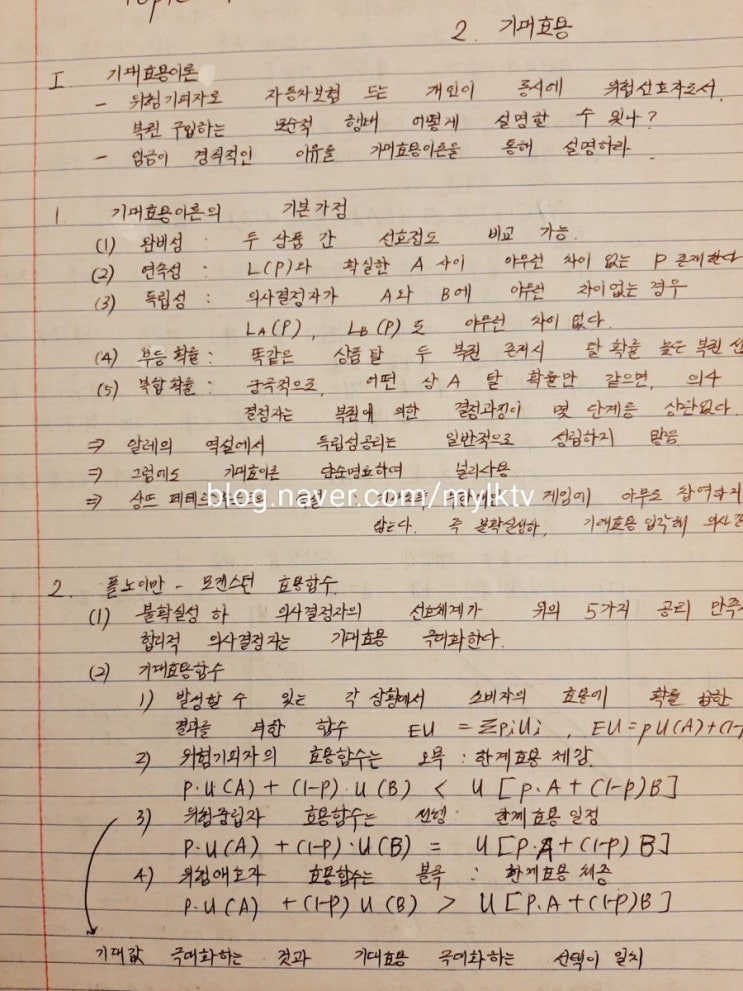 Topic
2. 기대효용
I. 기대효용이론
- 위험기피자로 자동차보험 드는 개인이 동시에 위험선호자로서
복권 구입하는 모순적 행태 어떻게 설명할 수 있나?
- 임금이 경직적인 이유를 기대효용이론을 통해 설명하라.
1. 기대효용이론의 기본가정
(1) 완비성 : 두 상품 간 선호정도 비교 가능.
(2) 연속성 : L(P)와 확실한 A 사이 아무런 차이 없는 P 존재한다
(3) 독립성 : 의사결정자가 A와 B에 아무런 차이없는 경우
LA(P), LB(P)도 아무런 차이 없다.
(4) 부등확률 : 똑같은 상품 탈 두 복권 존재시 탈 확률 높은 복권 선
(5) 복합확률 : 궁극적으로, 어떤 상 A 탈 확률만 같으면, 의사
결정자는 복권에 의한 결정과정이 몇 단계든 상관없다.
⇒ 알레의 역설에서 독립성공리는 일반적으로 성립하지 않음
⇒ 그럼에도 기대효이론 단순명료하며 널리사용
⇒ 상뜨 페테르 게임에 아무도 참여하지
blog.naver.com/mylktv
않는다. 즉 불확실성하, 기대효용 입각해 의사결
2. 폰노이만 - 모겐스턴 효용함수.
(1) 불확실성 하 의사결정자의 선호체계가 위의 5가지 공리 만족
합리적 의사결정자는 기대효용 극대화한다.
(2) 기대효용함수
1) 발생할 수 있는 각 상황에서 소비자의 효용에 확률 곱한
결과를 더한 함수 EU = ΣPiUi, EU=pU(A)+(1-
2) 위험기피자의 효용함수는 오목 : 한계효용 체감.
P·U(A) + (1-P)·U(B) < U[P·A+(1-P)B]
3) 위험중립자 효용함수는 선형: 한계효용 일정
P·U(A) + (1-P)·U(B) = U[P·A+(1-P)B]
4) 위험애호자 효용함수는 볼록 : 한계효용 체증
P·U(A) + (1-P)U(B) > U[P·A+(1-P)B]
기대값 극대화하는 것과 기대효용 극대화하는 선택이 일치